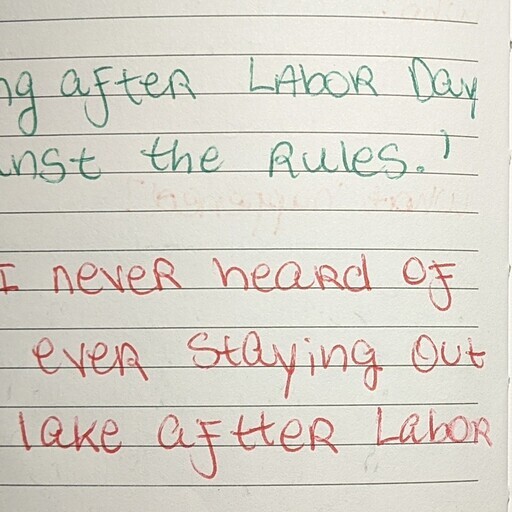 ng after LABOR Day
inst the Rules.'
I never heard of
ever staying out
lake aftter Labor